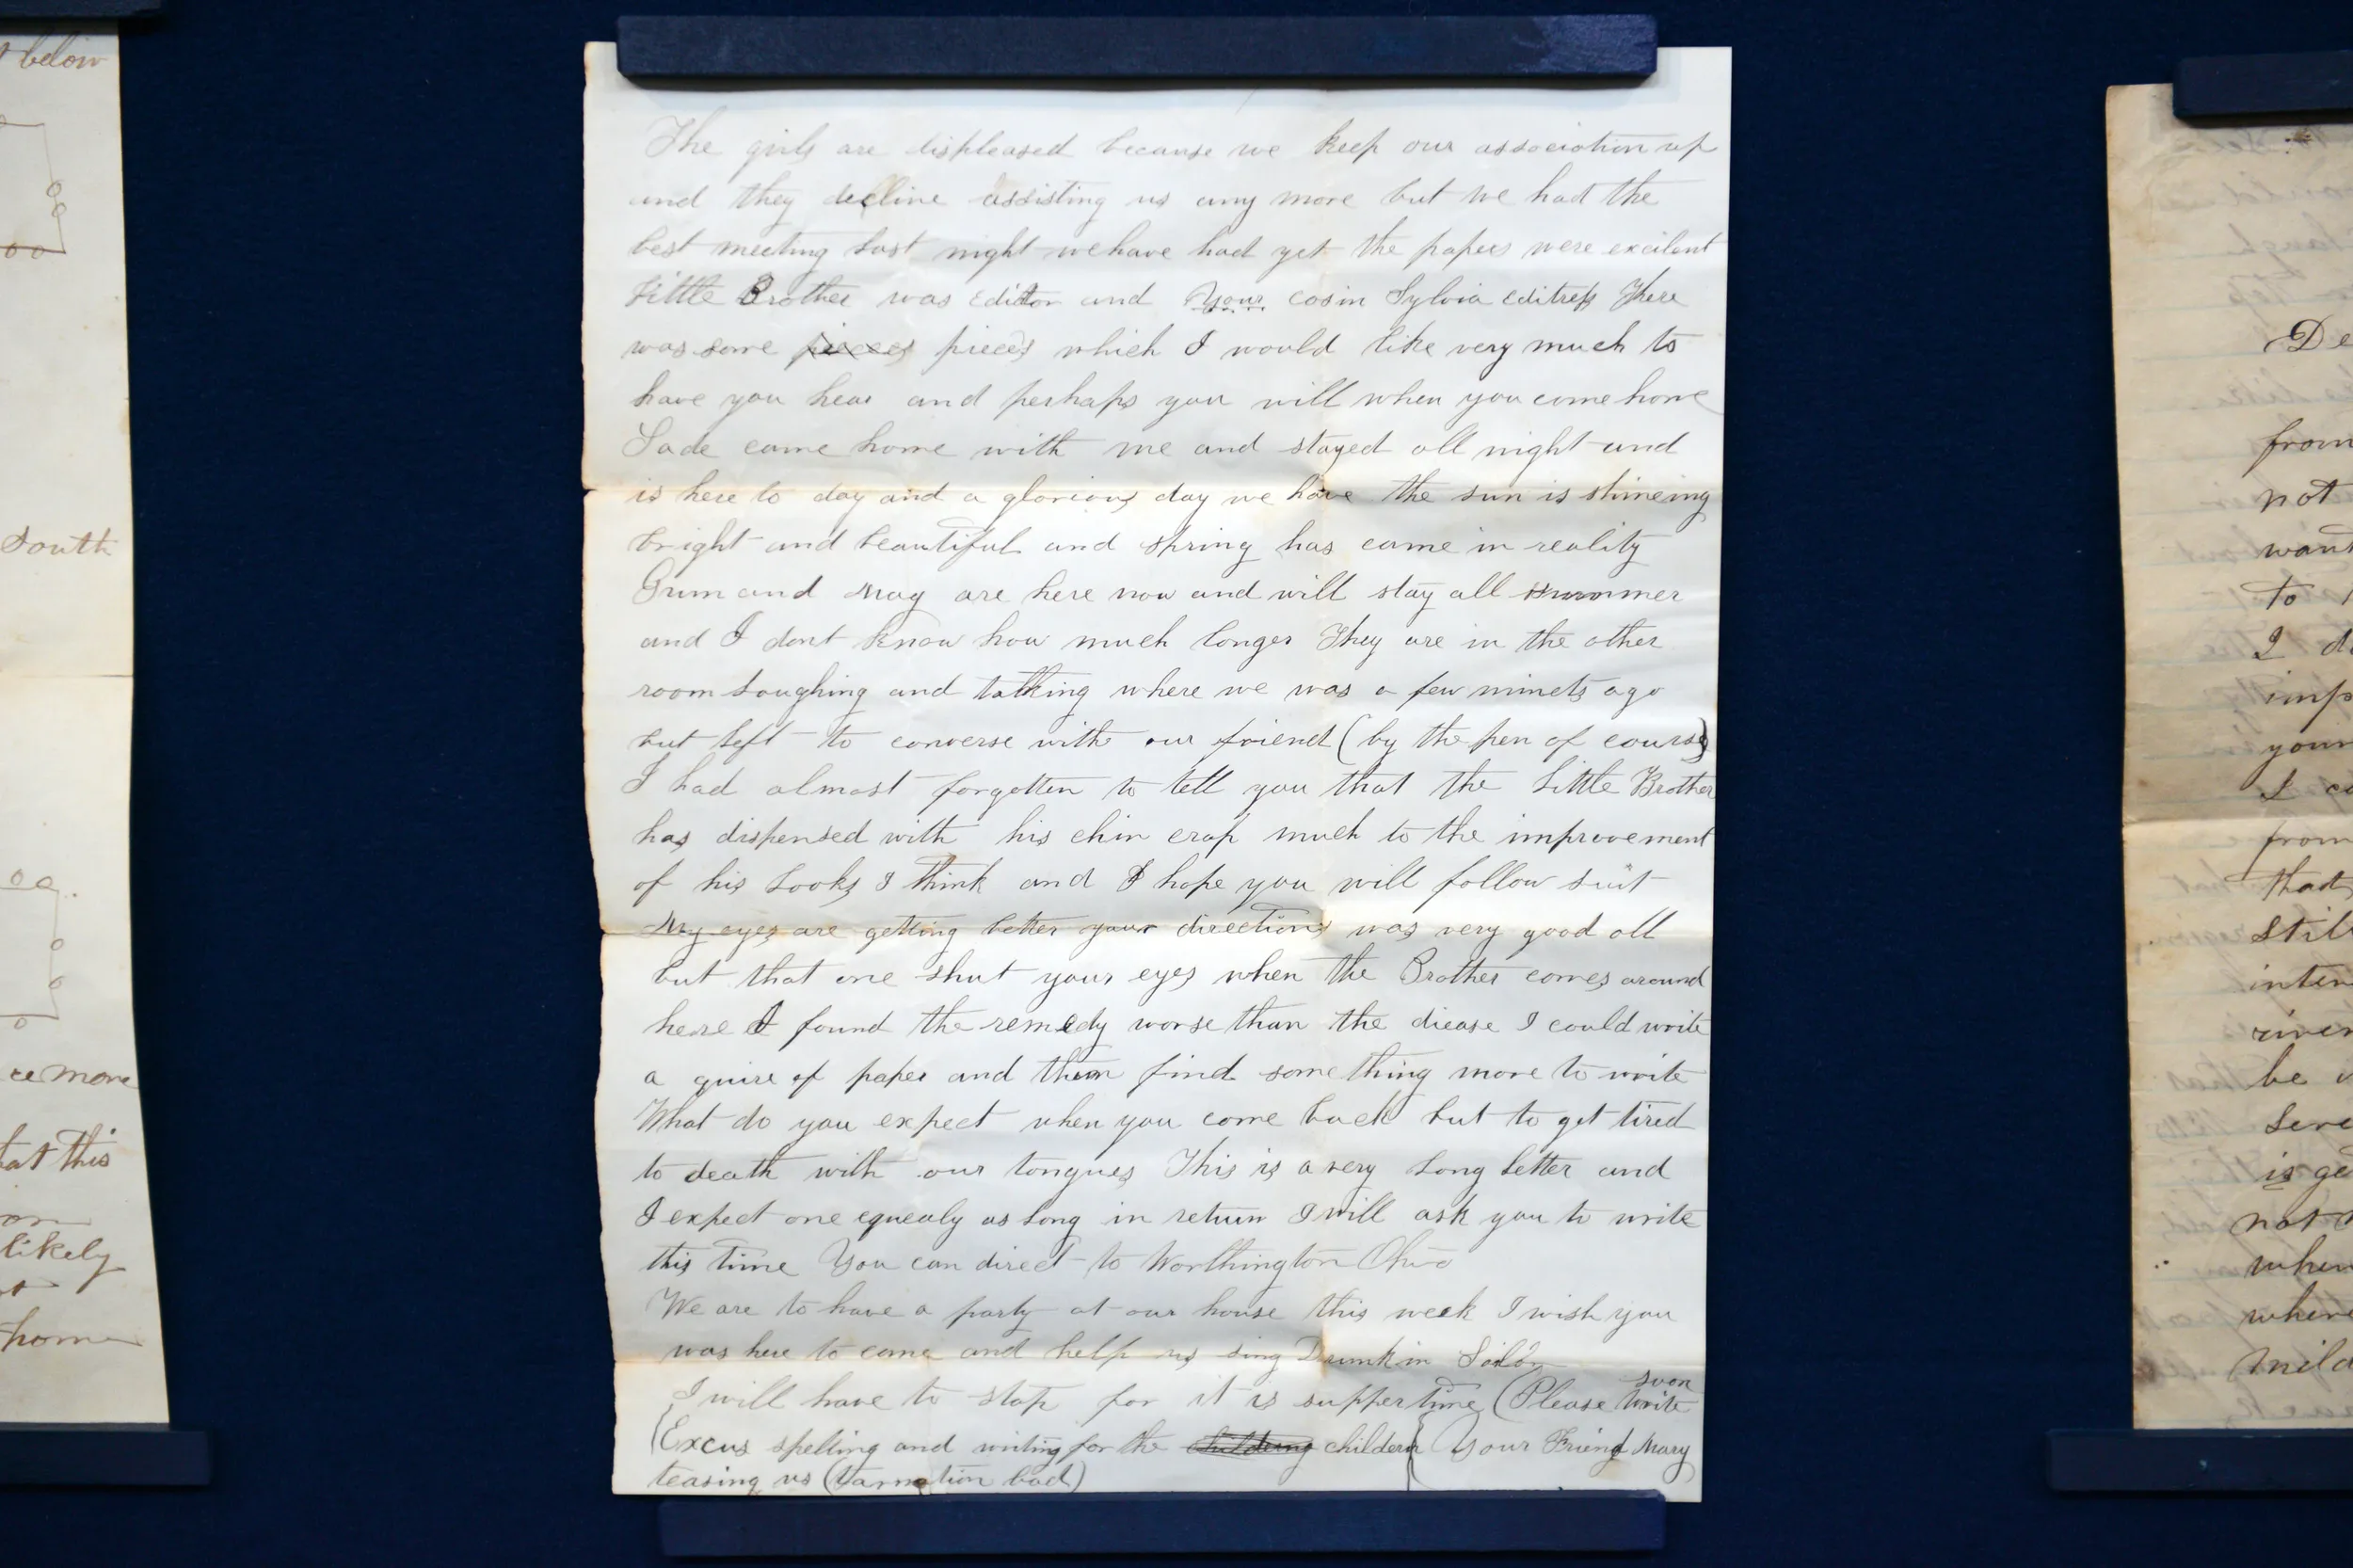 t below
South
ce more
at this
on
likely
home
The girls are displeased because we keep our association up
and they decline assisting us any more but we had the
best meeting last night we have had yet the papers were excilent
Little Brother was Editor and Your cosin Sylvia editress There
was some pieces pieces which I would like very much to
have you hear and perhaps you will when you come home
Sade came home with me and stayed all night and
is here to day and a glorious day we have the sun is shineing
bright and beautiful and spring has came in reality
Grum and Mag are here now and will stay all summer
and I dont know how much longer They are in the other
room laughing and talking where we was a few minets ago
but left to converse with our friend (by the pen of course)
I had almost forgotten to tell you that the Little Brother
has dispensed with his chin crop much to the improvement
of his looks I think and I hope you will follow suit
My eyes are getting better your directions was very good all
but that one shut your eyes when the Brother comes around
here I found the remedy worse than the diease I could write
a quire of paper and then find some thing more to write
What do you expect when you come back but to get tired
to death with our tongues This is a very long letter and
I expect one equealy as long in return I will ask you to write
this time You can direct to Worthington Ohio
We are to have a party at our house this week I wish you
was here to come and help us sing Drunkin Sailor
I will have to stop for it is supper time (Please write soon
(Excus spelling and writing for the childern Your Friend Mary
teasing us (tarnation bad)
De
from
not
want
to
I d
imp
your
I c
from
that
still
inter
river
be i
seve
is ge
not
when
where
mild